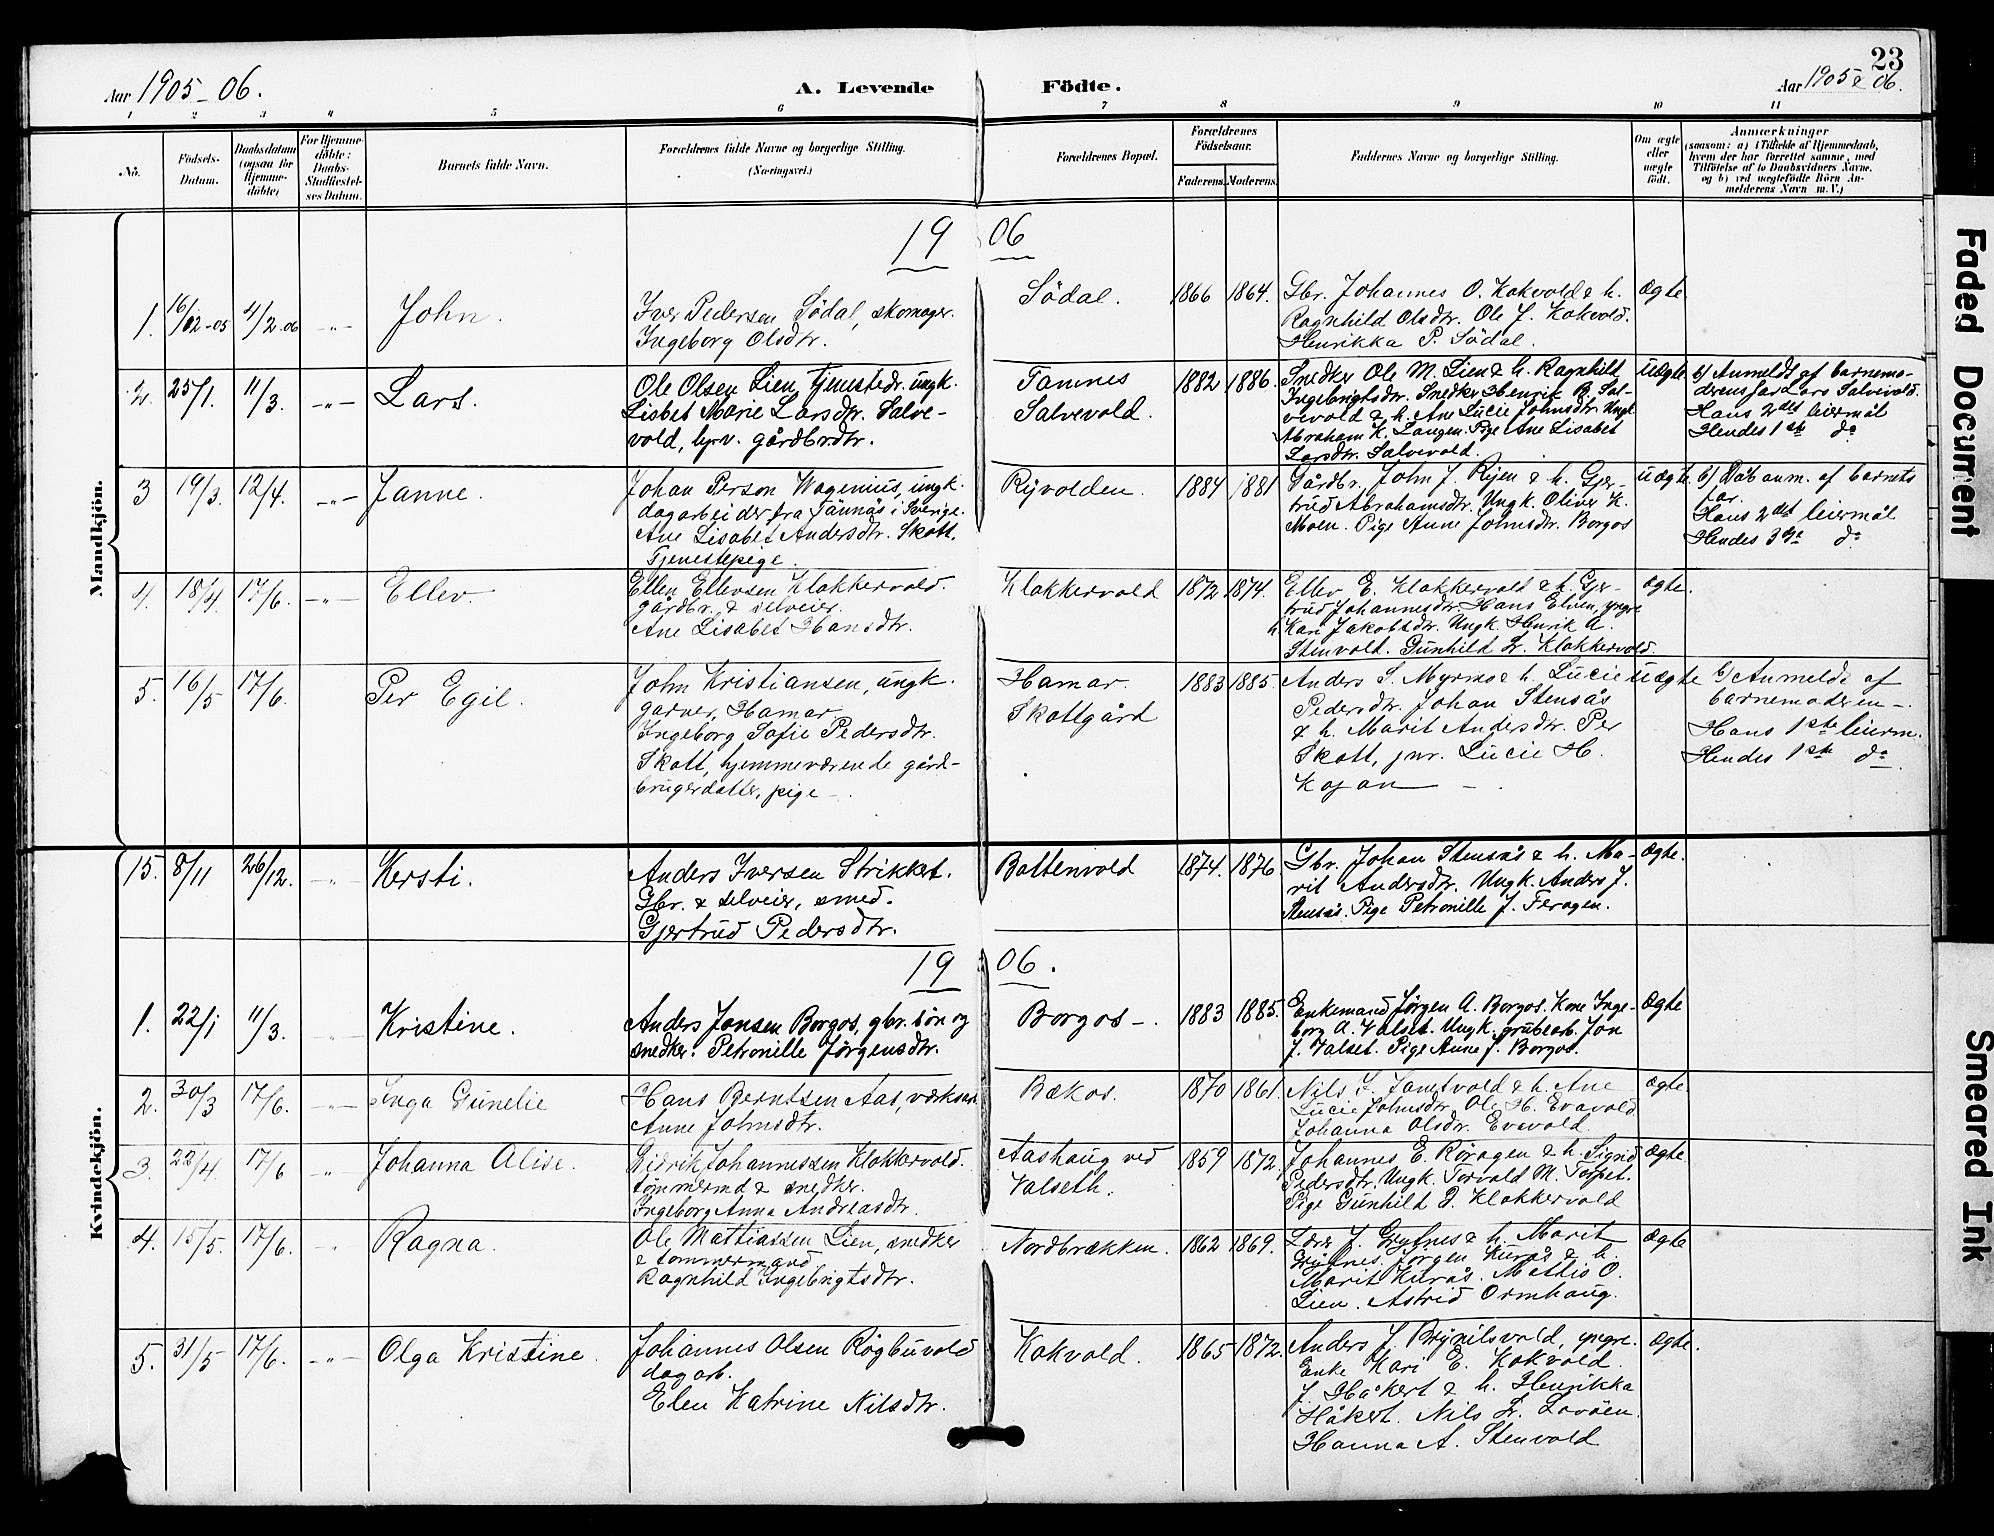 23
Aar 1905-06.
A. Levende Födte.
Aar 1905 & 06.
1 2 3 4 5 6 7 8 9 10 11
No.
Födsels-Datum.
Daabsdatum (ogsaa for Hjemmedöbte)
For Hjemmedöbte: Daabs-Stadfæstelses Datum.
Barnets fulde Navn.
Forældrenes fulde Navne og borgerlige Stilling. (Næringsvei.)
Forældrenes Bopæl.
Forældrenes Födselsaar.
Faderens. Moderens.
Faddernes Navne og borgerlige Stilling.
Om ægte eller uægte födt.
Anmærkninger
(saasom: a) i Tilfælde af Hjemmedaab, hvem der har forrettet samme, med Tilföielse af to Daabsvidners Navne, og b) ved uægtefödte Börn Anmelderens Navn m. V.)
Mandkjön.
1906
1. 16/12-05 4/2-06 -"- John.
Iver Pedersen Södal, skomager.
Ingeborg Olsdtr.
Södal. 1866 1864.
Gbr. Johannes O. Kokvold & h.
Ragnhild Olsdtr. Ole J. Kokvold.
Henrikka P. Södal.
Ægte
2. 25/1. 11/3. -"- Lars.
Ole Olsen Lien, tjenestedr. ungk.
Lisbet Marie Larsdtr. Salve-
vold, hjv. gårdbrdtr.
Tamnes
Salvevold.
1882 1886.
Snedker Ole M. Lien & h. Ragnhild
Ingebrigtsdtr. Snedker Henrik B. Sal-
vevold & h. Ane Lucie Johnsdtr. Ungk.
Abraham K. Langen. Pige Ane Lisabet
Larsdtr. Salvevold.
uægte
b) Anmeldt af barnemo-
derens far Lars Salvevold.
Hans 2det leiermål
Hendes 1ste do
3 19/3. 12/4. -"- Janne.
Johan Person Wagenius, ungk.
dagarbeider fra Tännäs i Sverige.
Ane Lisabet Andersdtr. Skott,
Tjenestepige.
Ryvolden. 1884 1881
Gårdbr. John J. Ryen & h. Gjer-
trud Abrahamsdtr. Ungk. Oliver K.
Moen. Pige Anne Johnsdtr. Borgos
uægte
b) Dåb anm. af barnets
far.
Hans 2det leiermål
Hendes 3die do
4. 18/4 17/6. -"- Ellev.
Ellev Ellevsen Klokkervold.
gårdbr. & selveier.
Ane Lisabet Hansdtr.
Klokkervold 1872 1874.
Ellev E. Klokkervold & h. Gjer-
trud Johannesdtr. Hans Elven, yngre
h. Kari Jakobsdtr. Ungk. Henrik A.
Stenvold. Gunhild Kr. Klokkervold.
ægte.
5. 16/5 17/6. Per Egil.
John Kristiansen, ungk.
garver, Hamar
Ingeborg Sofie Pedersdtr.
Skott, hjemmeværende gård-
brugerdatter, pige -.
Hamar.
Skottgård
1883 1885.
Anders S. Myrmo & h. Lucie
Pedersdtr. Johan Stensås
& h. Marit Andersdtr. Per
Skott, jnr. Lucie H.
Kojan - .
uægte
b) Anmeldt af
barnemoderen -.
Hans 1ste leierm.
Hendes 1ste do.
Kvindekjön.
15. 8/11 26/12. -"- Kersti.
Anders Iversen Strikkert.
Gbr. & selveier, smed.
Gjertrud Pedersdtr.
Bottenvold 1874. 1876
Gbr. Johan Stensås & h. Ma-
rit Andersdtr. Ungk. Anders J.
Stensås. Pige Petronille J. Feragen.
Ægte.
1906.
1. 22/1 11/3. -"- Kristine.
Anders Jonsen Borgos, gbr. søn og
snedker. Petronille Jørgensdtr.
Borgos -. 1883 1885.
Enkemand Jørgen A. Borgos. Kone Inge-
borg A. Valset. Ungk. grubearb. Jon
J. Valset. Pige Anne J. Borgos.
Ægte
2. 30/3 17/6. -"- Inga Gunelie
Hans Berntsen Aas, værksarb.
Anne Johnsdtr.
Bækos. 1870 1861.
Nils J. Jametvold & h. Ane
Lucie Johnsdtr. Ole H. Evavold
Johanna Olsdr. Evavold.
Ægte.
3. 22/4. 17/6 " Johanna Alise.
Didrik Johannessen Klokkervold.
tömmermd & snedker.
Ingeborg Anna Andreasdtr.
Aashaug ved
Valseth.
1859 1872.
Johannes E. Röragen & h. Sigrid
Pedersdtr. Ungk. Torvald M. Torpet.
Pige Gunhild D. Klokkervold
Ægte.
4. 15/5. 17/6. -"- Ragna.
Ole Mattiassen Lien, snedker
& tömmermand
Ragnhild Ingebrigtsdtr.
Nordbrækken. 1862 1869.
Lærer J. Grytnes & h. Marit
Grytnes. Jörgen Kurås & h.
Marit Kurås. Mattis O.
Lien. Astrid Ormhaug.
Ægte
5. 31/5 17/6. -"- Olga Kristine.
Johannes Olsen Røgbuvold
dagarb.
Elen Katrine Nilsdtr.
Kokvold. 1865 1872.
Anders J. Brynilsvold, yngre.
Enke Kari E. Kokvold.
J. Håkert & h. Henrikka
Håkert. Nils Kr. Lovöen.
Hanna A. Stenvold
Ægte.
Faded Document
Smeared Ink